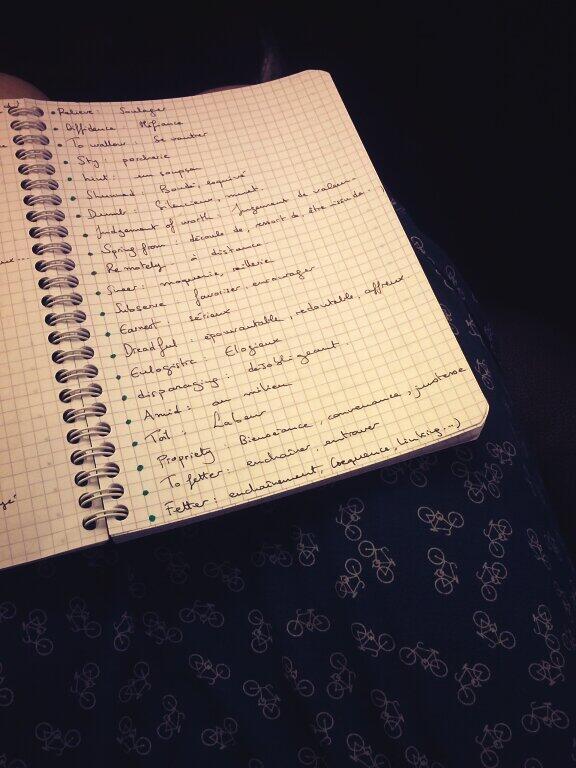 • Relieve : Soulager
• Diffidence : Méfiance
• To wallow : Se vautrer
• Sty : porcherie
• hint : un soupçon
• Shunned : Banni, esquivé
• Dumb : Silencieux, muet
• Judgement of worth : jugement de valeur
• Spring from : découle de, ressort de, être issu de
• Remotely : à distance
• Sneer : moquerie, raillerie
• Subserve : favoriser, encourager
• Earnest : sérieux
• Dreadful : épouvantable, redoutable, affreux
• Eulogistic : Elogieux
• disparaging : désobligeant
• Amid : au milieu
• Toil : Labeur
• Propriety : Bienséance, convenance, justesse
• To fetter : enchaîner, entraver
• Fetter : enchaînement, (sequence, linking...)